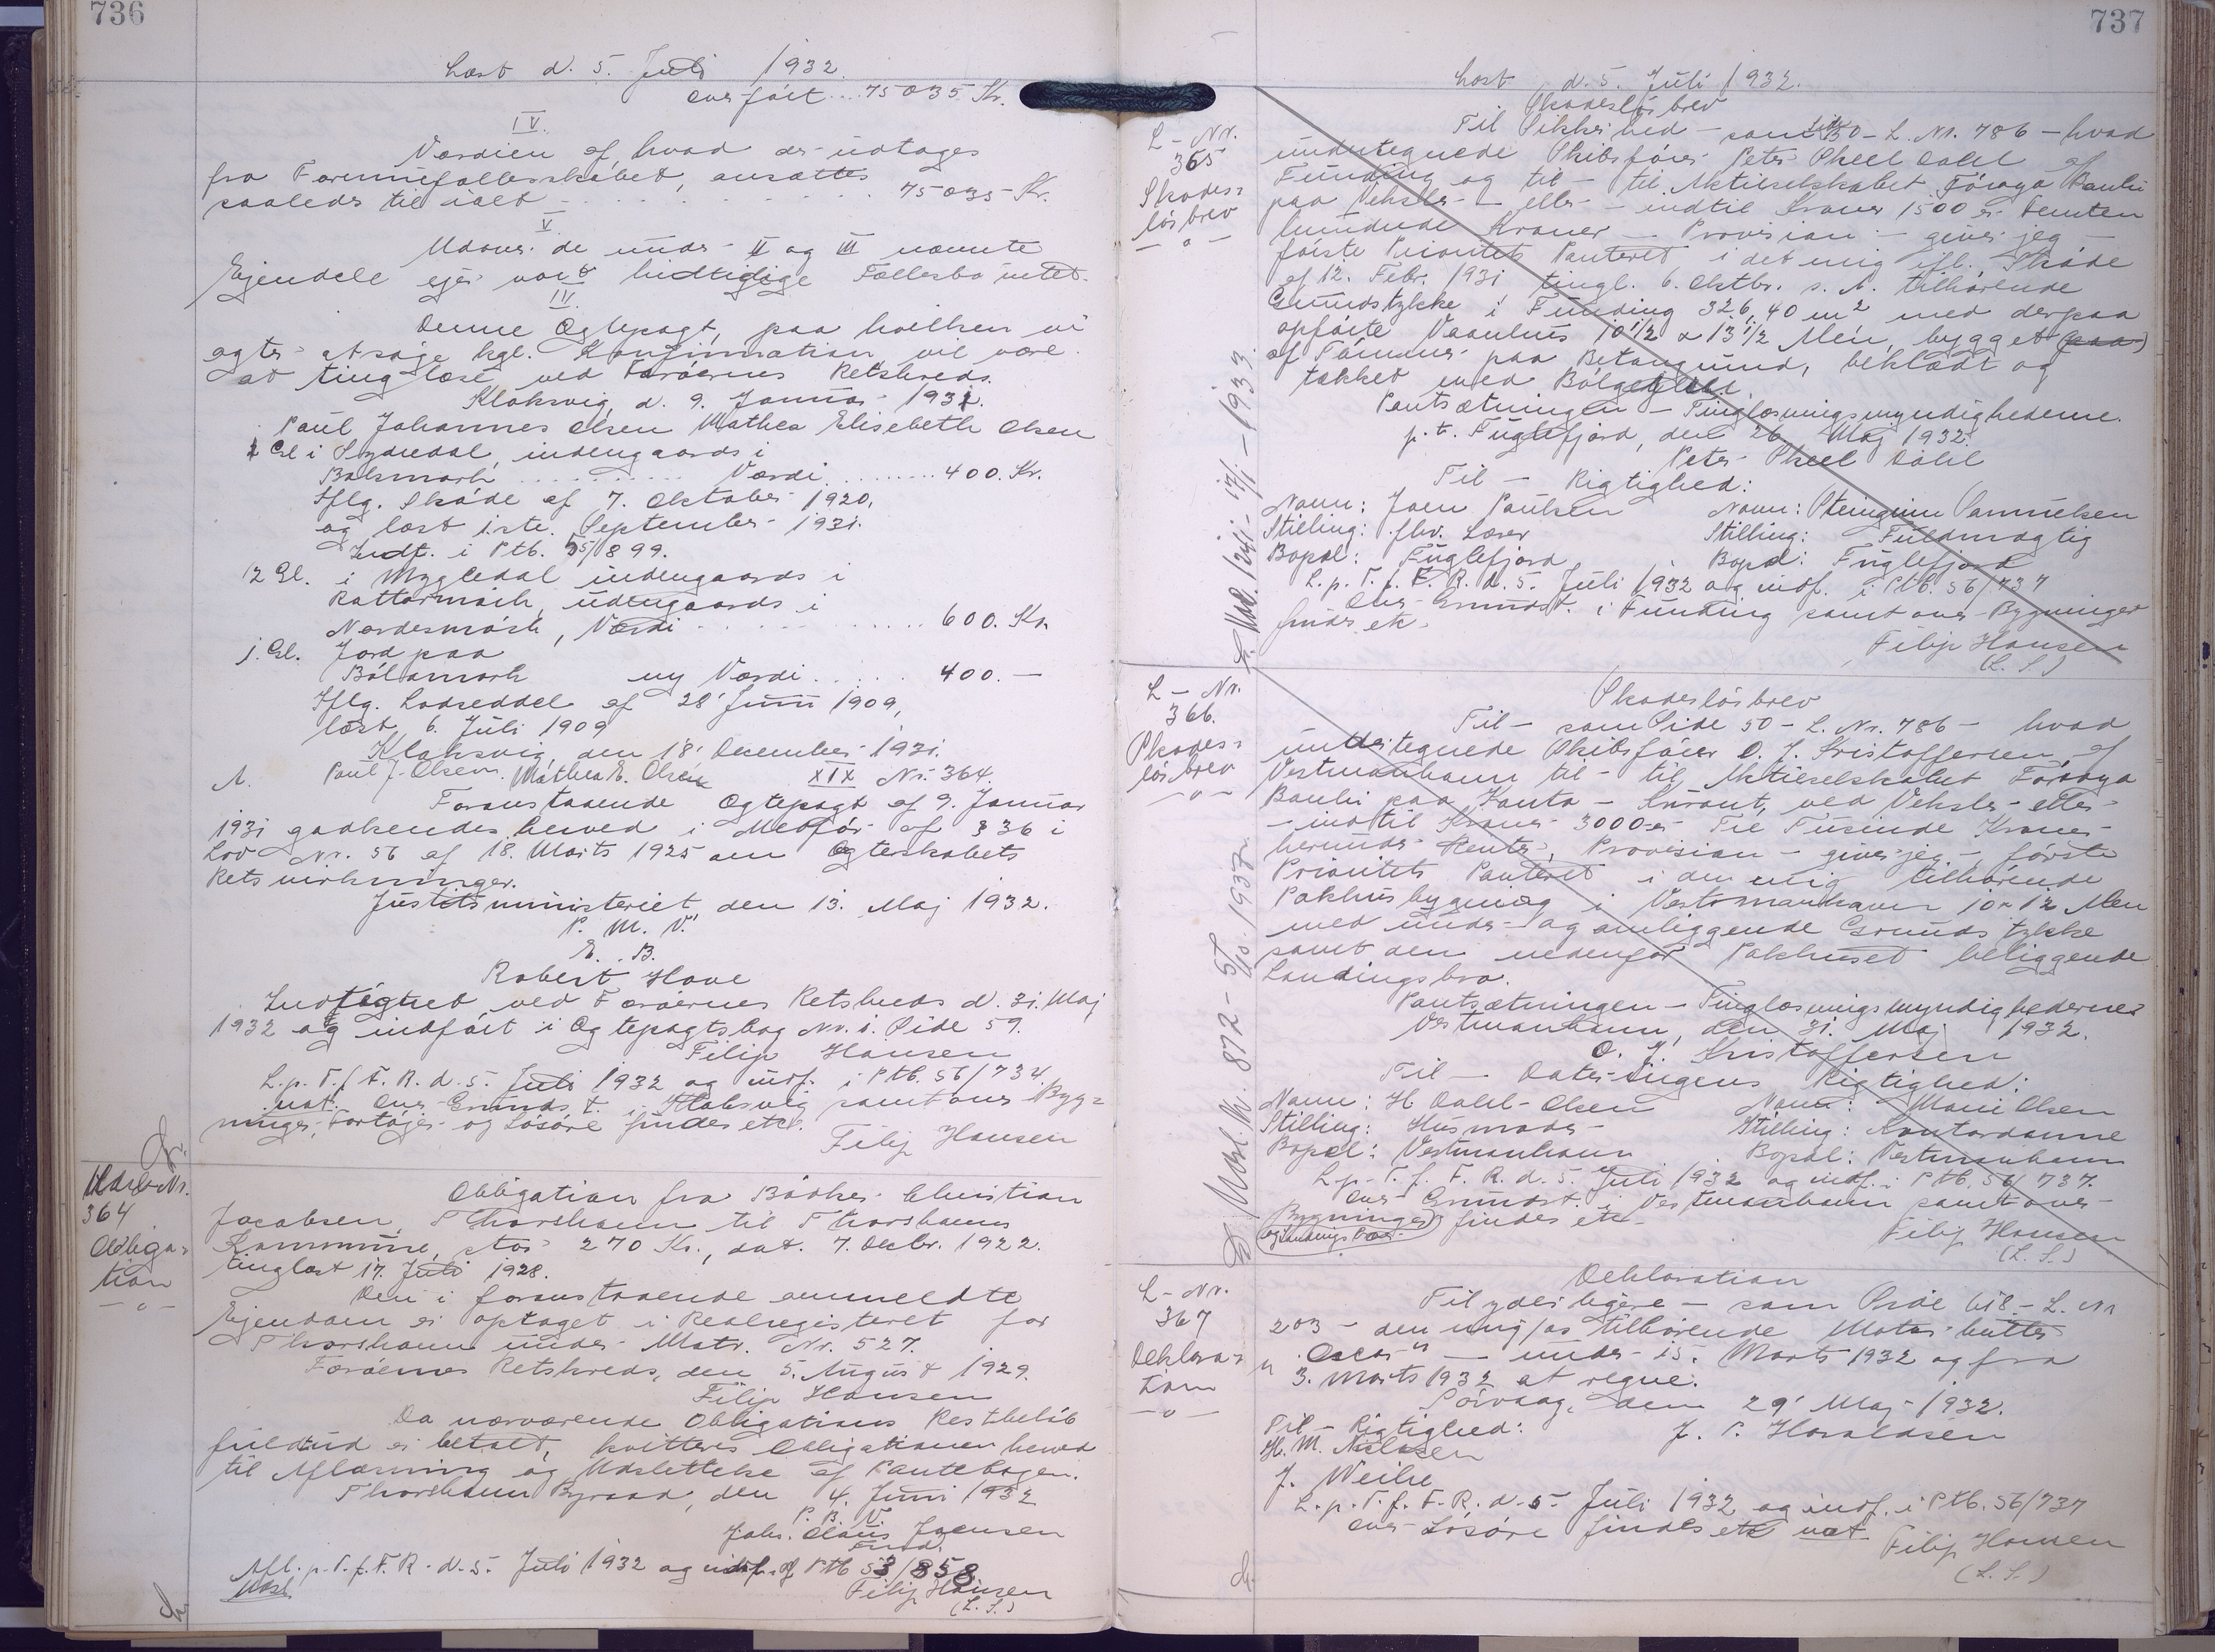 736
Læst d. 5. Juli 1932.
overført .. 75035 Kr.
IV.
Værdien af, hvad der udtages
fra Formuefællesskabet, ansættes
saaledes til ialt - . . . . . . . . . 75035 Kr.
V
Udover de under II og III nævnte
Ejendele ejer vort hidtidige Fællesbo intet.
IV.
Denne Ægtepagt, paa hvilken vi
agter at søge kgl. Konfirmation vil være
at tinglæse ved Færøernes Retskreds.
Klaksvig, d. 9. Januar 1931.
Paul Johannes Olsen Mathea Elisebeth Olsen
Gl i Sydredal, indengaards i
Bølsmørk . . . . . . Værdi . . . . . . 400. Kr.
Iflg. Skøde af 7. Oktober 1920,
og læst 1ste September 1921.
Indf. i Ptb. 35/899.
12 Gl. i Mygledal indengaards i
Rattarmørk, udengaards i
Nordesmørk, Værdi . . . . . . 600. Kr.
1. Gl. Jord paa
Bølamørk ny Værdi . . . . . 400. —
Iflg. Lodseddel af 28 Juni 1909,
læst 6. Juli 1909
Klaksvig, den 18' December 1931.
Paul J. Olsen. Mathea E. Olsen
A. XIX Nr. 364.
Foranstaaende Ægtepagt af 9. Januar
1931 godkendes herved i Medfør af § 36 i
Lov Nr. 56 af 18. Marts 1925 om Ægteskabets
Retsvirkninger.
Justitsministeriet, den 13. Maj 1932.
P. M. V.
E. B.
Robert Hove
Indfgtret ved Færøernes Retskreds d. 31. Maj
1932 og indført i Ægtepagtsbog Nr. 1. Side 59.
Filip Hansen
L. p. T. f. F. R. d. 5. Juli 1932 og indf. i Ptb. 56/734.
nat. Over Grundst. i Klaksvig samt over Byg=
ninger, Fartøjer og Løsøre findes etc.
Filip Hansen
Udsl. Nr.
364
Obliga=
tion
—o—
Obligation fra Bødker Christian
Jacobsen, Thorshavn til Thorshavns
Kommune, stor 270 Kr., dat. 7. Decbr. 1922.
tinglæst 17. Juli 1928.
Den i foranstaaende ommeldte
Ejendom er optaget i Realregisteret for
Thorshavn under Matr. Nr. 527.
Færøernes Retskreds, den 5. August 1929.
Filip Hansen
Da nærværende Obligations Restbeløb
fuldtud er betalt, kvitteres Obligationen herved
til Aflæsning og Udslettelse af Pantebogen.
Thorshavn Byraad, den 4. Juni 1932
P. B. V.
Johs. Claus Joensen
Fmd.
Afl. p. T. f. F. R. d. 5. Juli 1932 og udsl. af Ptb 53/858
Udsl.
Filip Hansen
(L. S.)
737
Læst d. 5. Juli 1932.
L - Nr.
365
Skades=
løsbrev
—o—
Skadesløsbrev
Til Sikkerhed - som Side 50 - L. Nr. 786 - hvad
undertegnede Skibsfører Peter Skeel Dahl af
Funding og til - til Aktieselskabet Føroya Banki
paa Veksler - eller - indtil Kroner 1500 er Femten
hundrede Kroner - Provision - giver jeg -
første Prioritets Panteret i det mig ifl. Skøde
af 12. Febr. 1931 tingl. 6. Oktbr. s. A. tilhørende
Grundstykke i Funding 326,40 m² med derpaa
opførte Vaanhus 10½ x 13½ Alen, bygget (paa)
af Tømmer paa Betongrund, beklædt og
tækket med Bølgeblik.
Pantsætningen - Tinglæsningsmyndighederne.
p. t. Fuglefjord, den 26. Maj 1932.
Peter Skeel Dahl
Til - Rigtighed:
Navn: Joen Poulsen Navn: Steingrim Samuelsen
Stilling: fhv. Lærer Stilling: Fuldmægtig
Bopæl: Fuglefjord Bopæl: Fuglefjord
L. p. T. f. F. R. d. 5. Juli 1932 og indf. i Ptb. 56/737
Over Grundst. i Funding samt over Bygninger
findes etc.
Filip Hansen
(L. S.)
L - Nr.
366.
Skades=
løsbrev
—o—
Skadesløsbrev
Til - som Side 50 - L. Nr. 786 - hvad
undertegnede Skibsfører O. J. Kristoffersen, af
Vestmanhavn til - til Aktieselskabet Føroya
Banki paa Konto - Kurant, ved Veksler - eller
- indtil Kroner 3000 er Tre Tusinde Kroner -
herunder Renter, Provision - giver jeg - første
Prioritets Panteret i den mig tilhørende
Pakhusbygning i Vestmanhavn 10 x 12 Alen
med under- og omliggende Grundstykke
samt den nedenfor Pakhuset beliggende
Landingsbro.
Pantsætningen - Tinglæsningsmyndighederne.
Vestmanhavn, den 31. Maj 1932.
O. J. Kristoffersen
Til - Dateringens Rigtighed:
Navn: H Dahl-Olsen Navn: Marie Olsen
Stilling: Husmoder Stilling: Kontordame
Bopæl: Vestmanhavn Bopæl: Vestmanhavn
L. p. T. f. F. R. d. 5. Juli 1932 og indf. i Ptb. 56/737.
Over Grundst. i Vestmanhavn samt over
Bygninger findes etc.
og Landingsbroer.
Filip Hansen
(L. S.)
L - Nr.
367
Deklara=
tion
—o—
Deklaration
Til yderligere - som Side 618 - L. Nr
203 - den mig/os tilhørende Motorkutter
"Oscar" - under 15. Marts 1932 og fra
3. Marts 1932 at regne.
Sørvaag, den 29' Maj 1932.
Til - Rigtighed: J. P. Haraldsen
H. M. Nielsen
J. Weihe
L. p. T. f. F. R. d. 5. Juli 1932 og indf. i Ptb. 56/737
over Løsøre findes etc nat.
Filip Hansen
(L. S.)